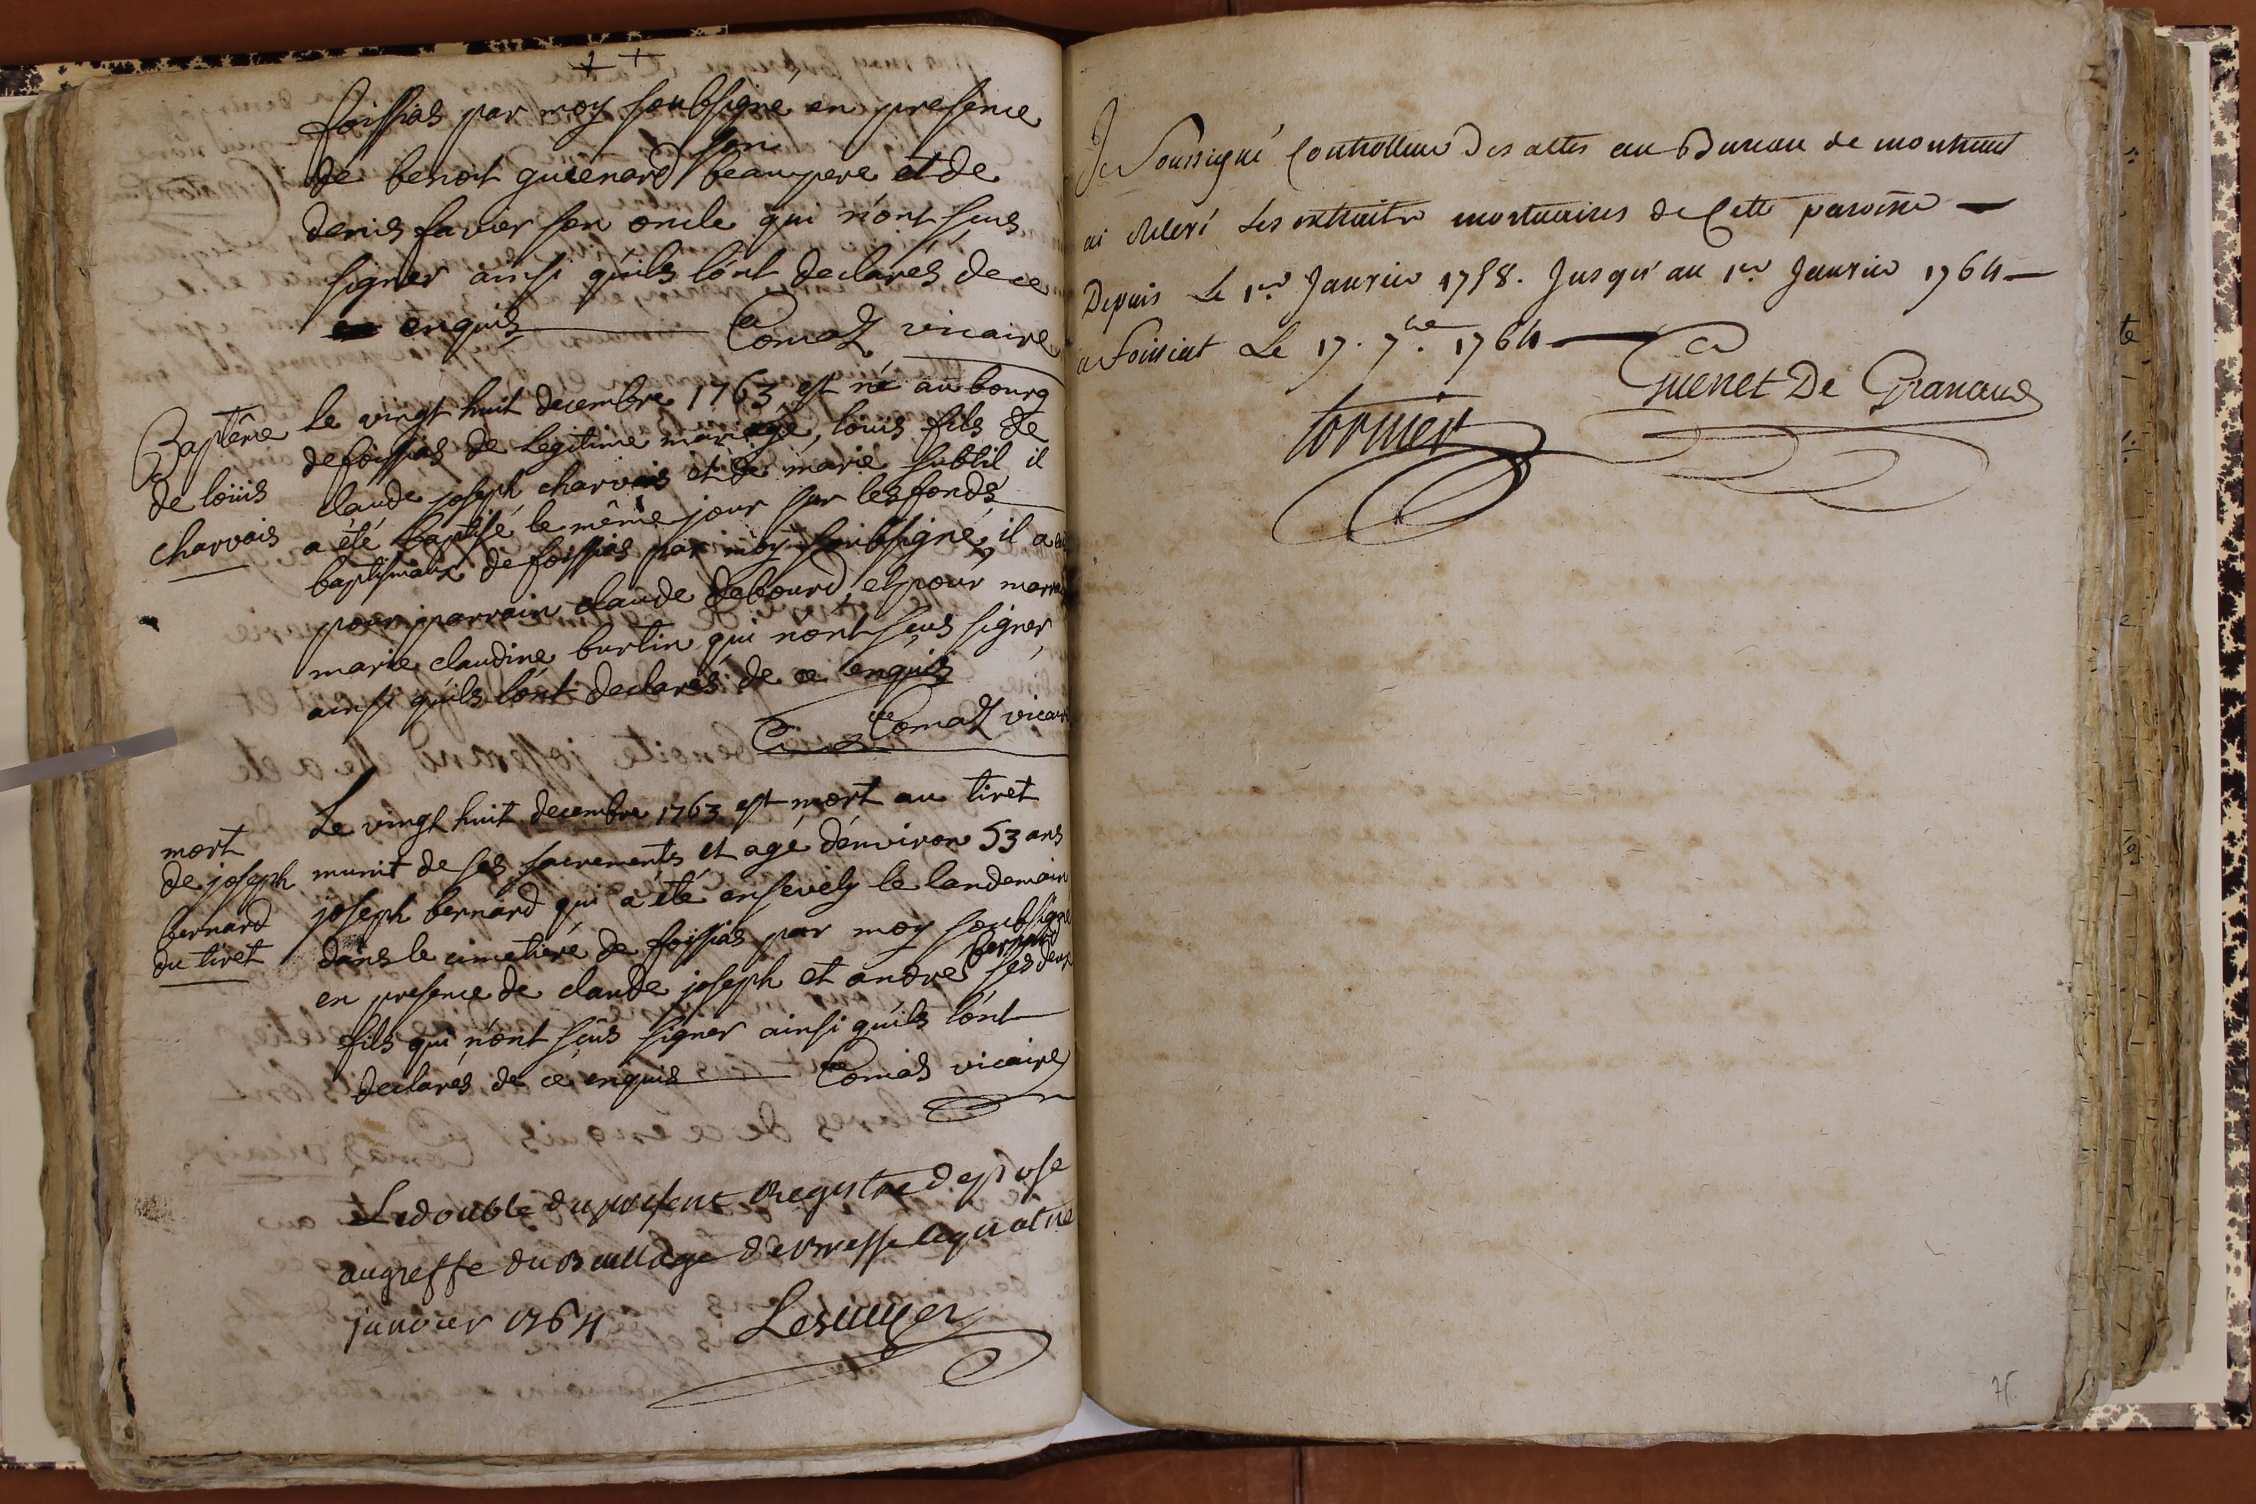 foissias par moy soubsigné en presence
de benoit guienard son beaupere et de
denis favier son oncle qui n'ont sçus
signer ainsi qu'ils l'ont declarés de ce
enquis Comas vicaire
Baptême
de loüis
charvais
le vingt huit decembre 1763 est né au bourg
de foissias de legitime mariage, louis fils de
claude joseph charvais et de marie subtil il
a été baptisé le même jour sur les fonds
baptismaux de foissias par moy soubsigné, il a eu
pour parrain claude debourd, et pour marr
marie claudine burtin qui n'ont sçus signer
ainsi qu'ils l'ont declarés de ce enquis
Comas vicaire
mort
de joseph
bernard
du tiret
Le vingt huit decembre 1763 est mort au tiret
munit de ses sacrements et agé d'environ 53 ans
joseph bernard qui a été ensevely le landemain
dans le cimetiere de foissias par moy soubsigné
en presence de claude joseph et andré bernard ses deux
fils qui n'ont sçûs signer ainsi qu'ils l'ont
declarés de ce enquis Comas vicaire
Le double du present Registre deposé
au greffe du Bailliage de Bresse le quatre
janvier 1764
Je Soussigné Controlleur Des actes au Bureau de
ai relevé Les extraits mortuaires de Cette paroisse
Depuis Le 1er Janvier 1758. Jusqu'au 1er Janvier 1764
a Foissiat Le 17. 7bre. 1764
tornier
Guenet De